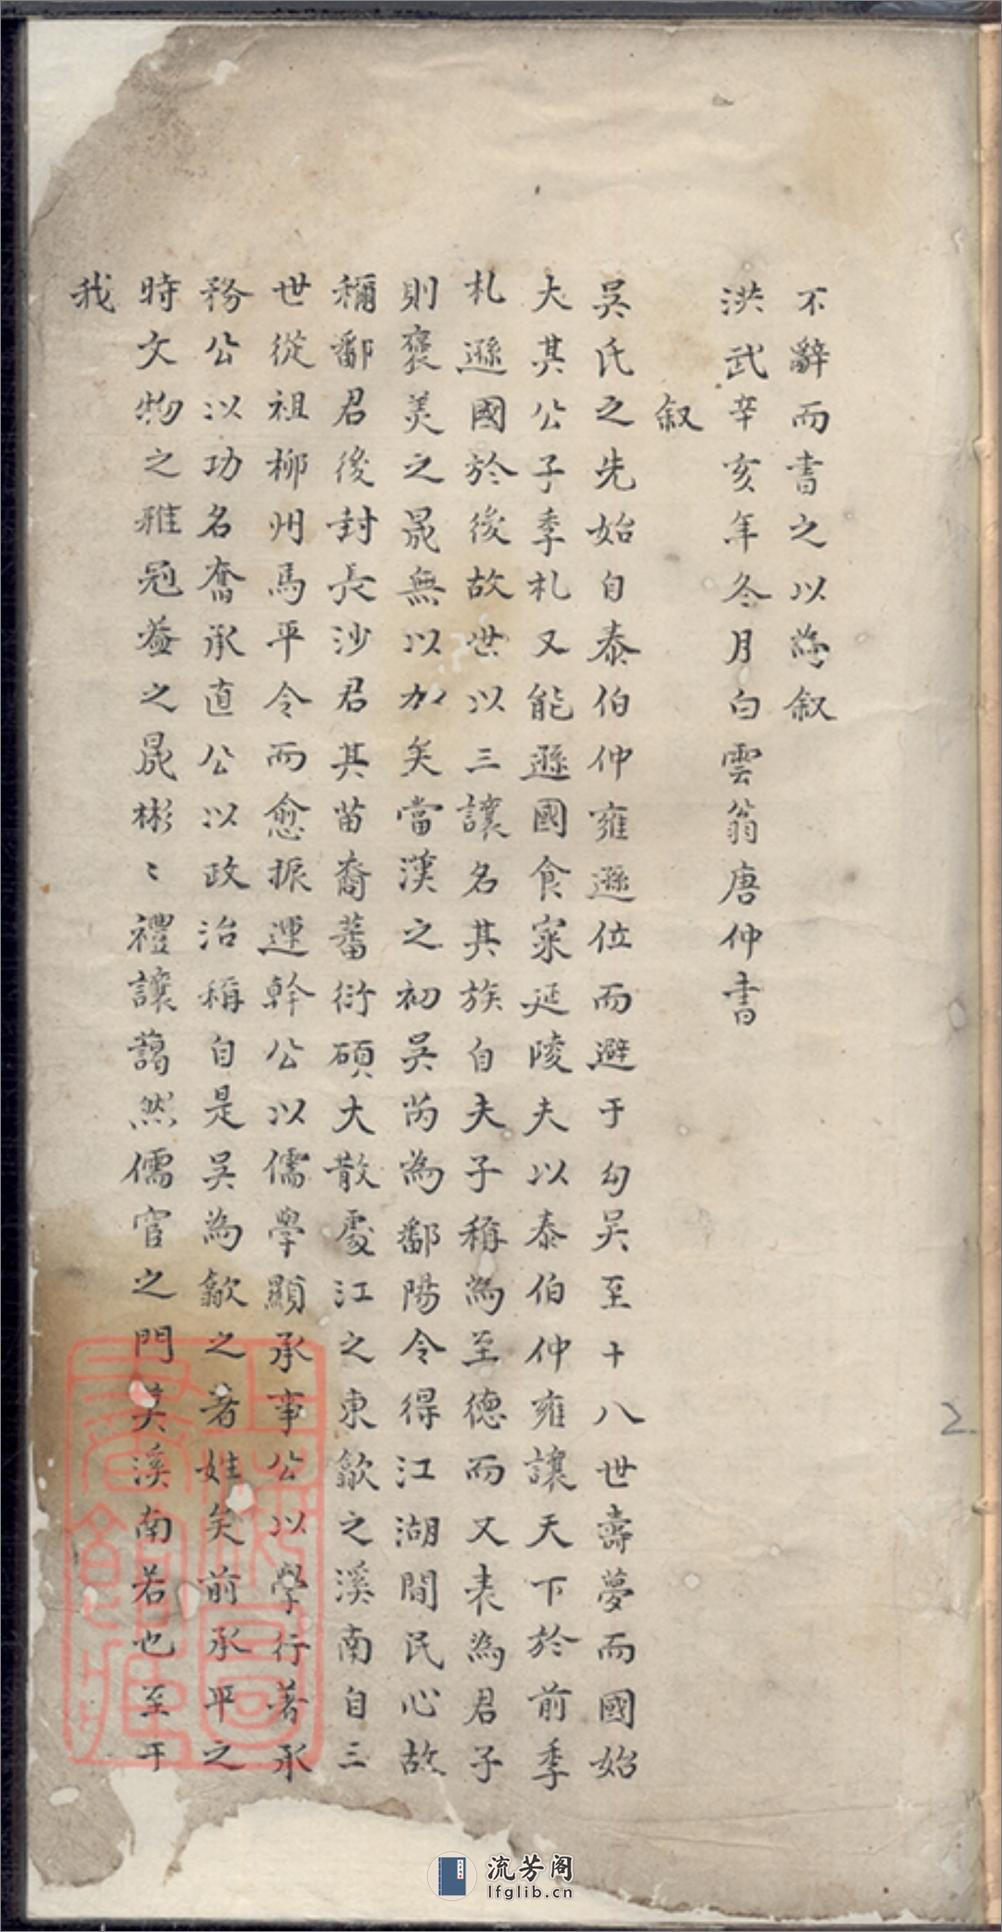 不辭而書之以為叙
洪武辛亥年冬月白雲翁唐仲書
叙
吳氏之先始自泰伯仲雍遜位而避于勾吳至十八世壽夢而國始
大其公子季札又能遜國食寀延陵夫以泰伯仲雍讓天下於前季
札遜國於後故世以三讓名其族自夫子稱為至德而又表為君子
則褒美之晟無以加矣當漢之初吳芮為鄱陽令得江湖間民心故
稱鄱君後封長沙君其苗裔蕃衍碩大散處江之東歙之溪南自三
世從祖柳州馬平令而愈振運幹公以儒學顯承事公以學行著承
務公以功名奮承直公以政治稱自是吳為歙之著姓矣前承平之
時文物之雅冠蓋之晟彬〻禮讓藹然儒官之門美溪南若也至于
我
2
流芳阁
lfglib.cn